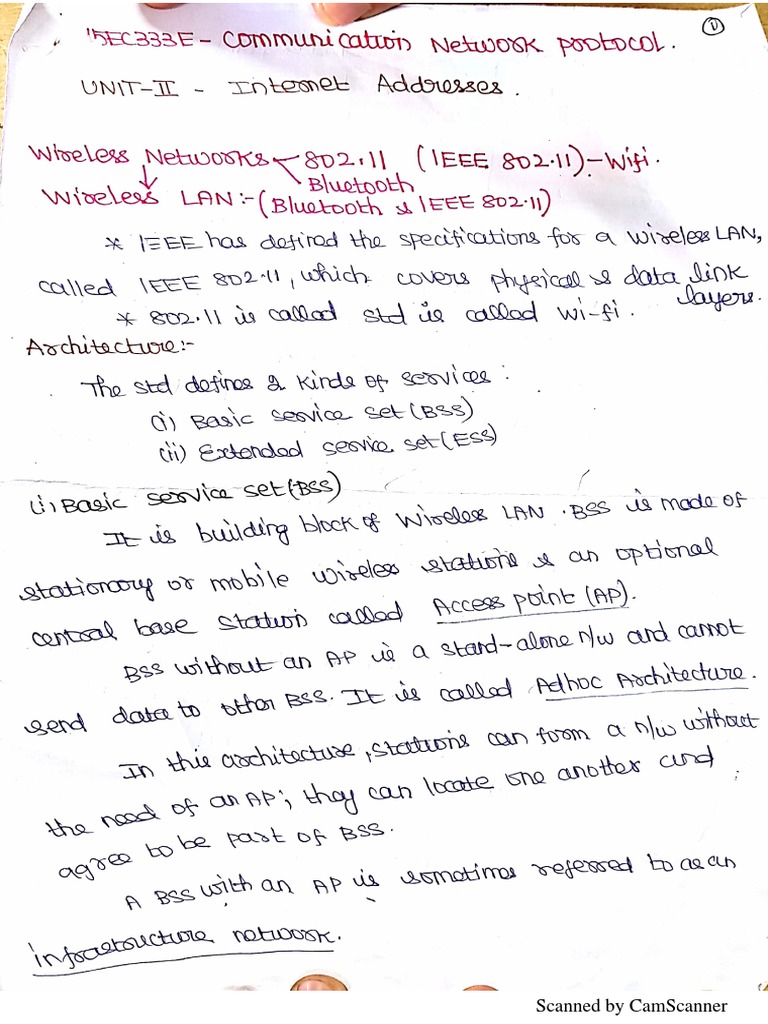 ①
15EC333E - Communication Network Protocol.
UNIT-II - Internet Addresses.
Wireless Networks 802.11 (IEEE 802.11) - Wifi.
Bluetooth
Wireless LAN:- (Bluetooth & IEEE 802.11)
* IEEE has defined the specifications for a wireless LAN,
called IEEE 802.11, which covers physical & data link
layers.
* 802.11 is called std is called wi-fi.
Architecture:-
The std defines 2 kinds of services:
(i) Basic service set (BSS)
(ii) Extended service set (ESS)
(i) Basic service set (BSS)
It is building block of wireless LAN. BSS is made of
stationary or mobile wireless stations & an optional
central base station called Access point (AP).
BSS without an AP is a stand-alone n/w and cannot
send data to other BSS. It is called Adhoc Architecture.
In this architecture, stations can form a n/w without
the need of an AP; they can locate one another and
agree to be part of BSS.
A BSS with an AP is sometimes referred to as an
infrastructure network.
Scanned by CamScanner